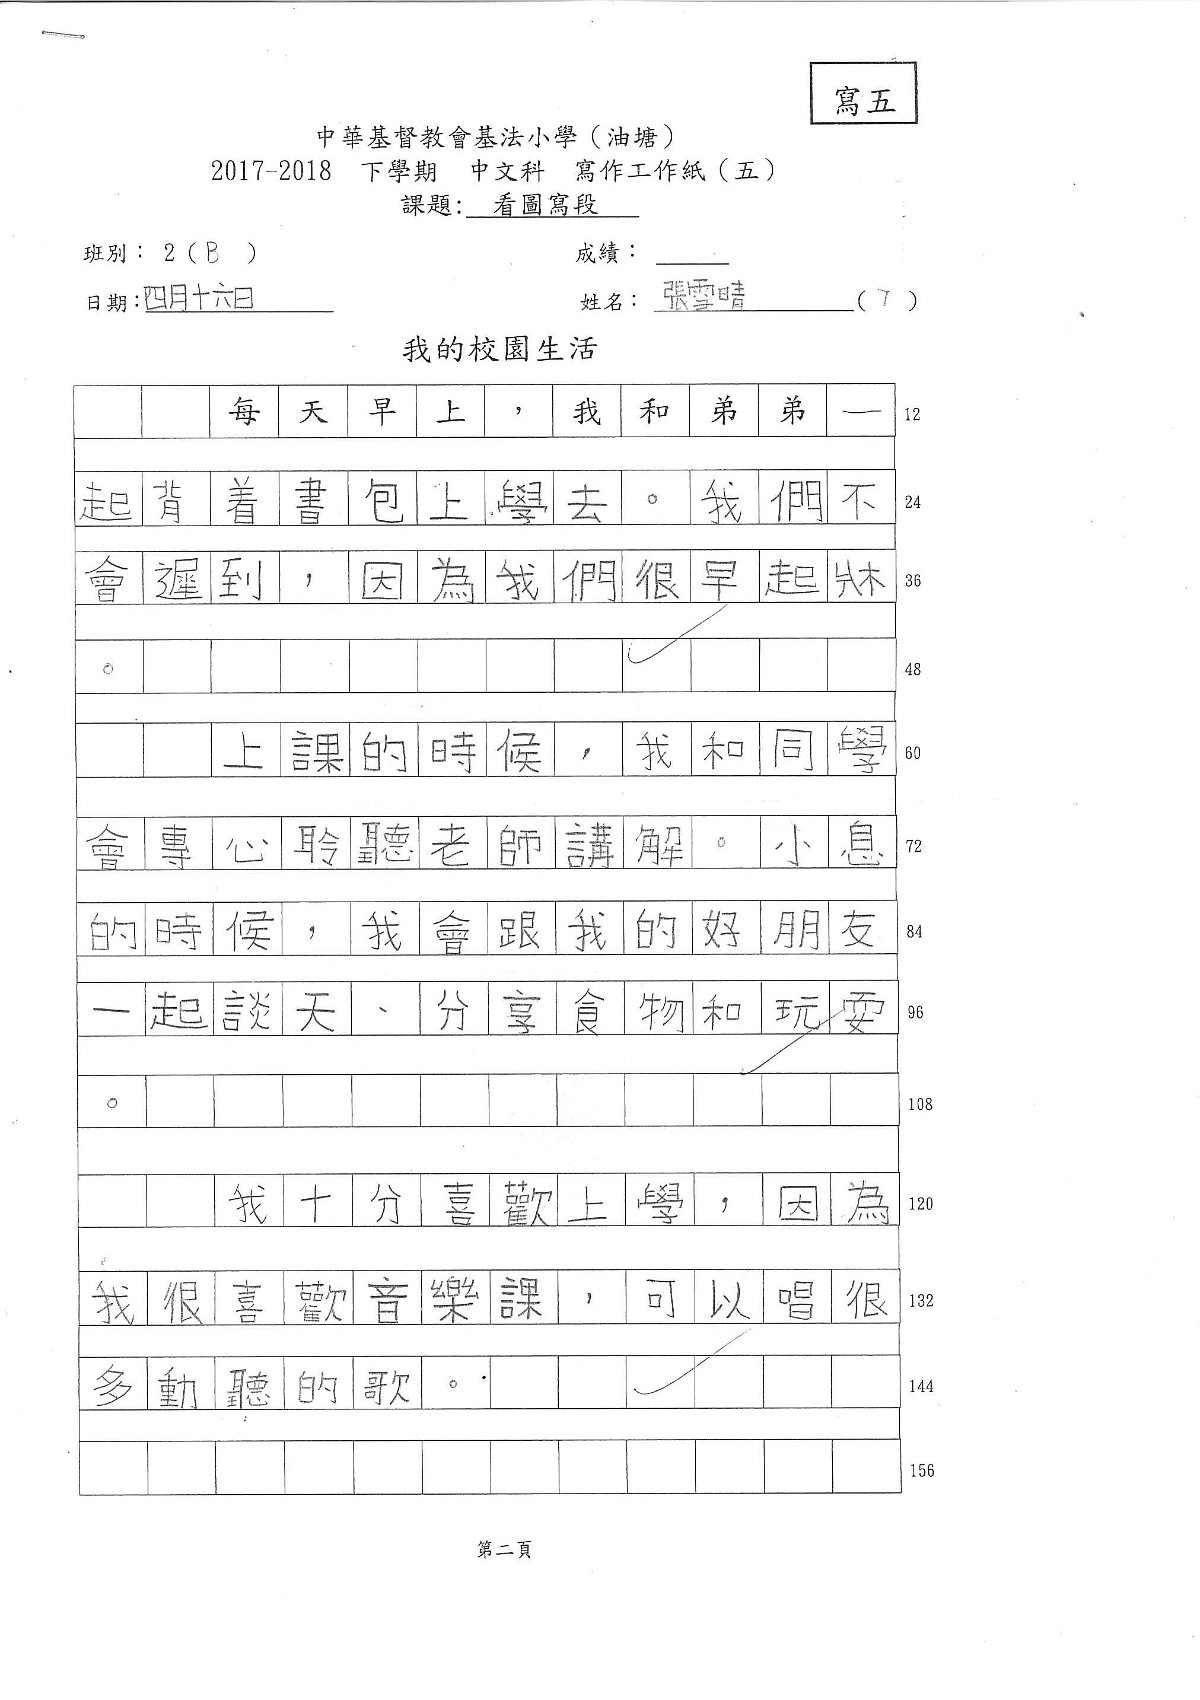 寫五
中華基督教會基法小學（油塘）
2017-2018 下學期 中文科 寫作工作紙（五）
課題：看圖寫段
班別：2（B）　成績：
日期：四月十六日　姓名：張雪晴（7）
我的校園生活
每天早上，我和弟弟一 12
起背着書包上學去。我們不 24
會遲到，因為我們很早起牀 36
。 48
上課的時候，我和同學 60
會專心聆聽老師講解。小息 72
的時候，我會跟我的好朋友 84
一起談天、分享食物和玩耍 96
。 108
我十分喜歡上學，因為 120
我很喜歡音樂課，可以唱很 132
多動聽的歌。 144
156
第二頁